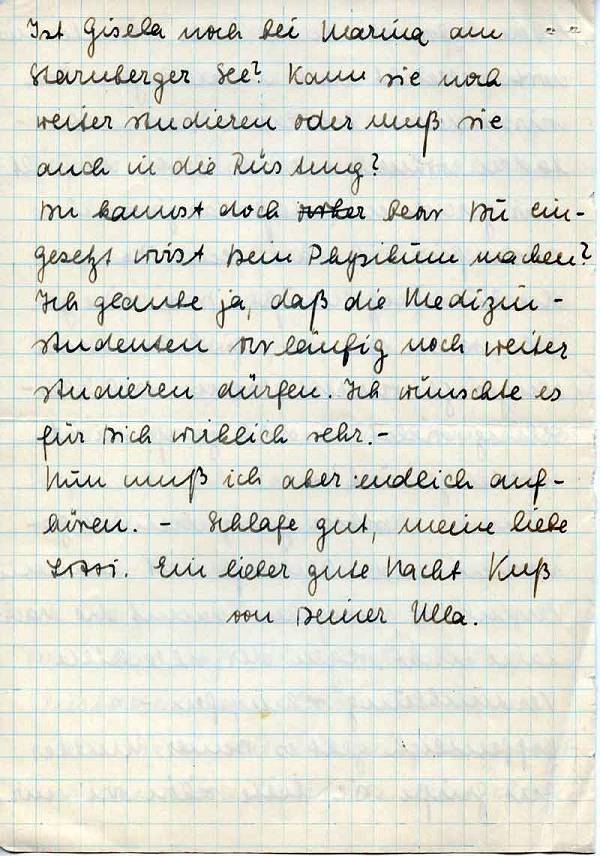 Ist Gisela noch bei Marina am
Starnberger See? Kann sie noch
weiter studieren oder muß sie
auch in die Rüstung?
Du kannst doch bevor Du ein-
gesetzt wirst Dein Physikum machen?
Ich glaube ja, daß die Medizin-
studenten vorläufig noch weiter
studieren dürfen. Ich wünschte es
für Dich wirklich sehr.-
Nun muß ich aber endlich auf-
hören. - Schlafe gut, meine liebe
Ein lieber gute Nacht Kuß
von Deiner Ulla.